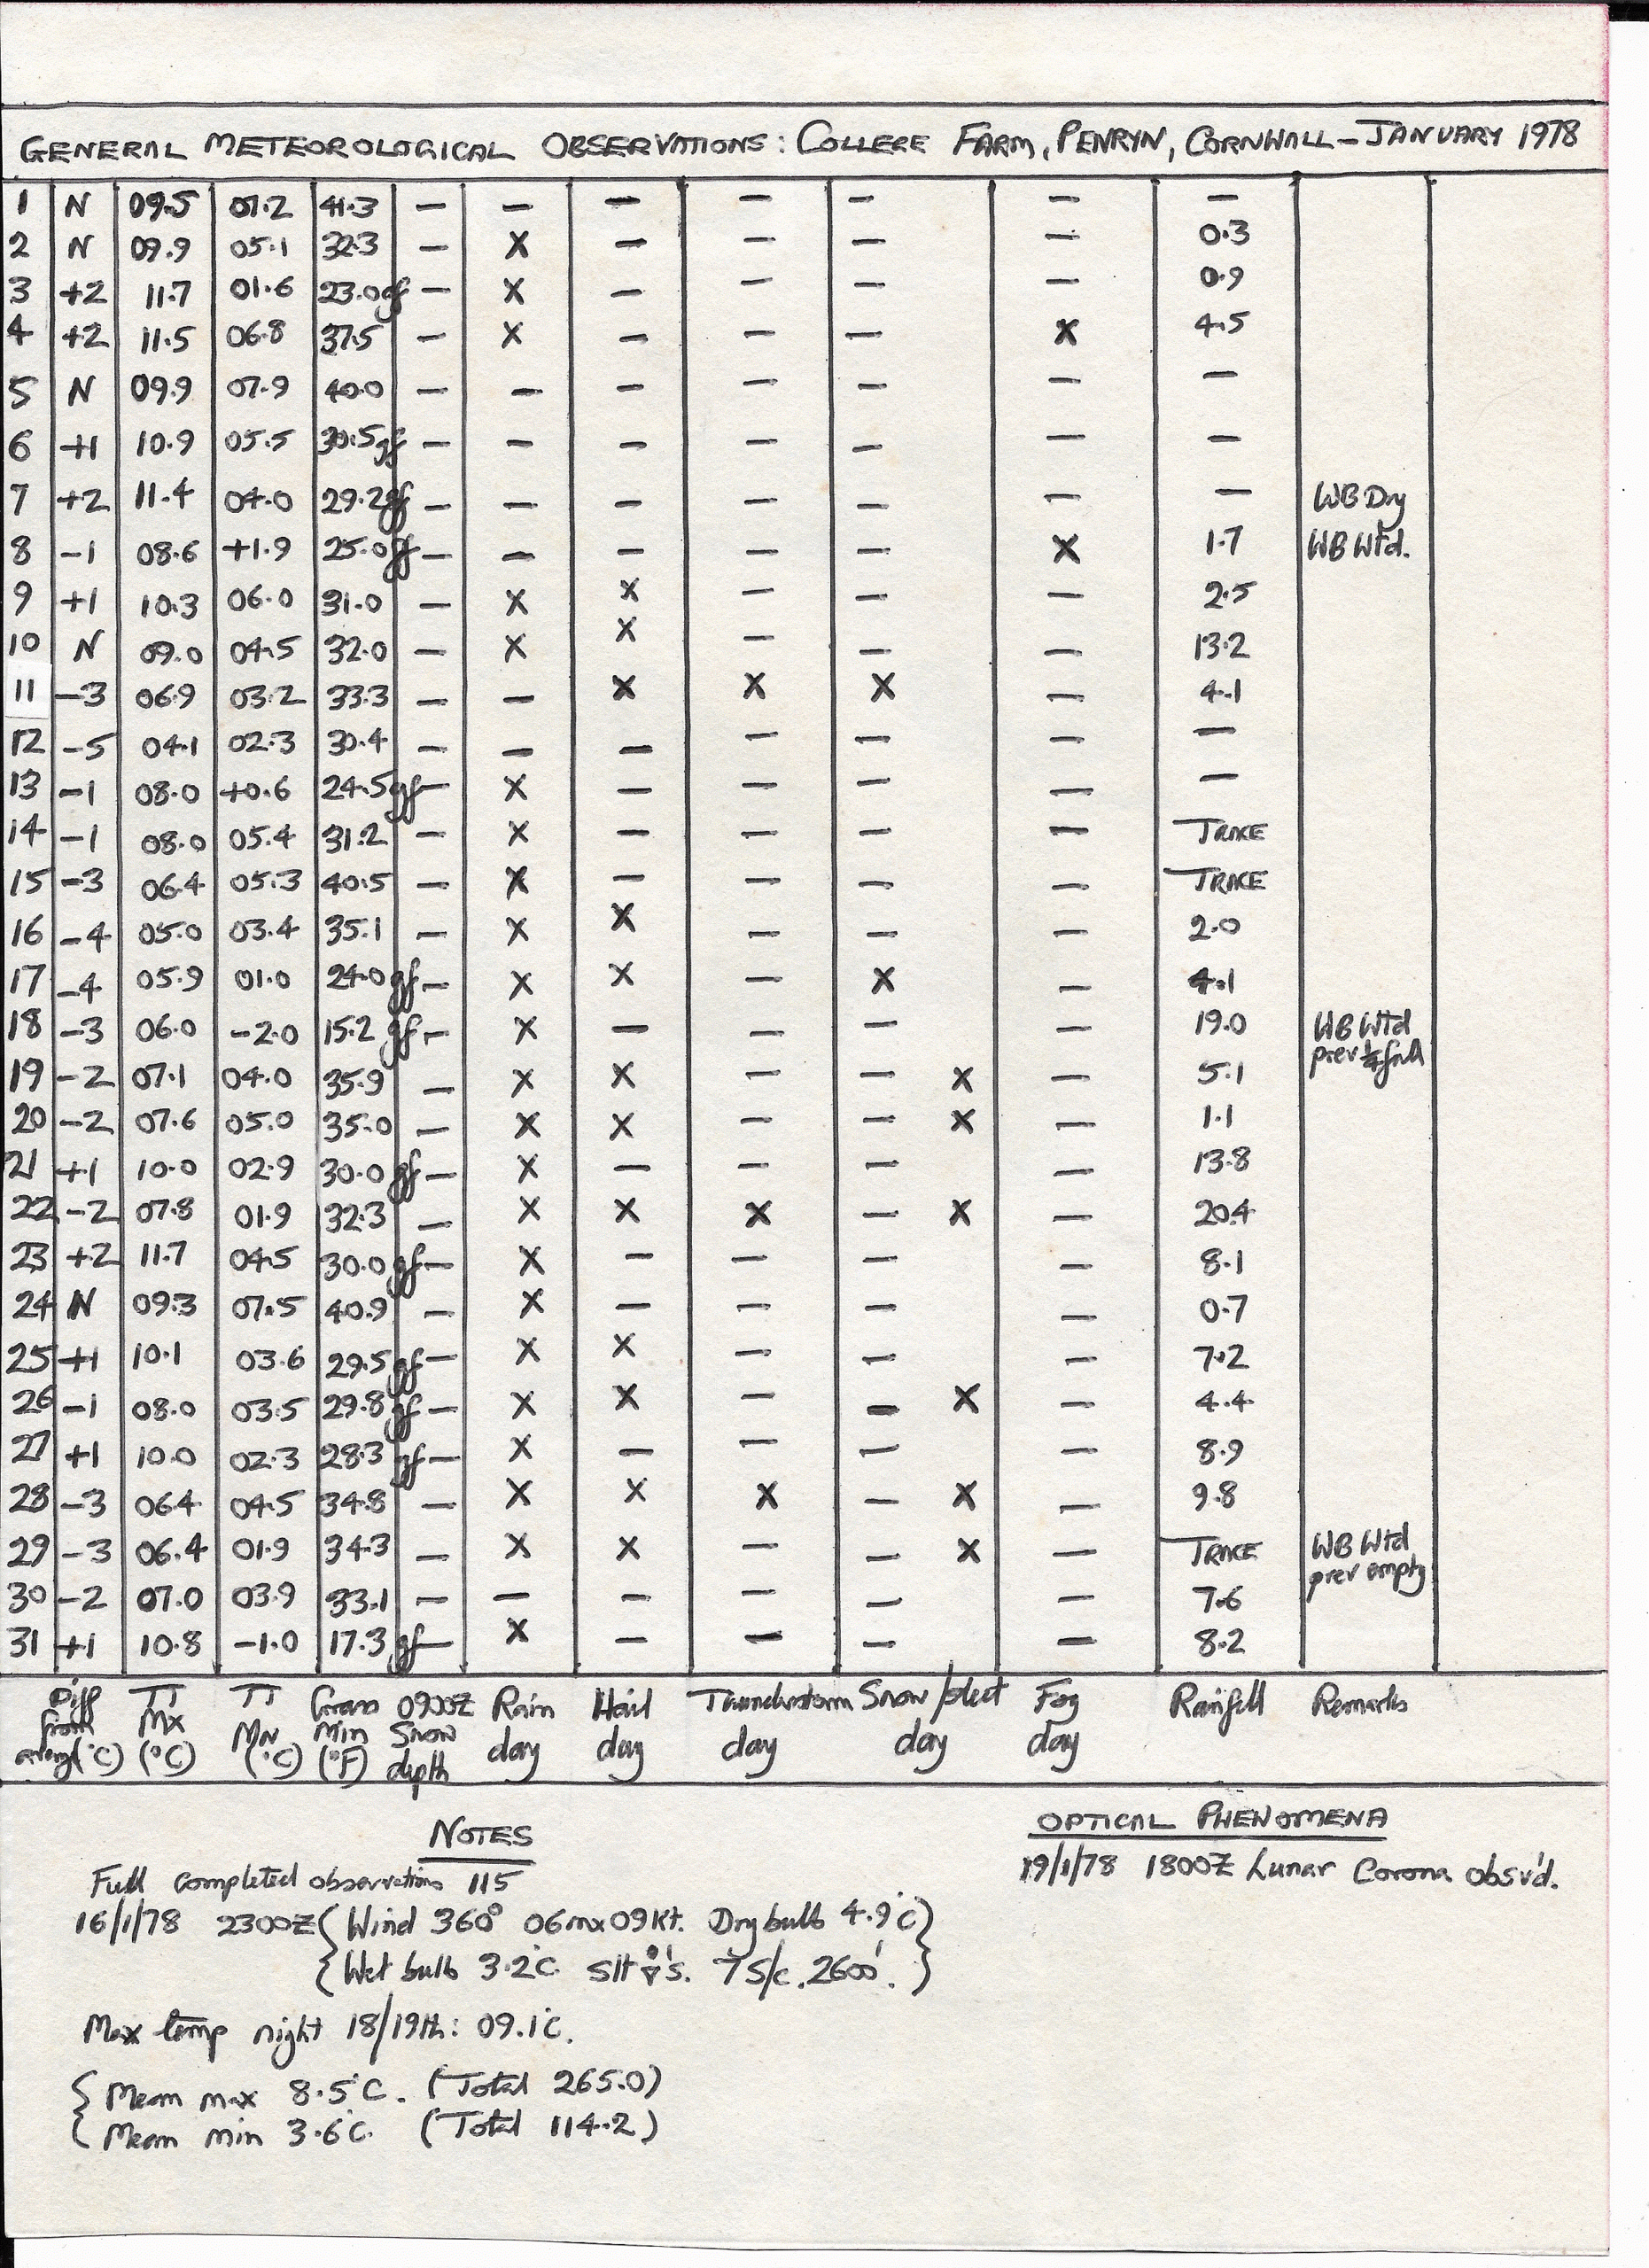 GENERAL METEOROLOGICAL OBSERVATIONS: COLLEGE FARM, PENRYN, CORNWALL – JANUARY 1978
1 N 09.5 07.2 41.3 — — — — — — —
2 N 09.9 05.1 32.3 — X — — — — 0.3
3 +2 11.7 01.6 23.0gf — X — — — — 0.9
4 +2 11.5 06.8 37.5 — X — — — X 4.5
5 N 09.9 07.9 40.0 — — — — — — —
6 +1 10.9 05.5 30.5gf — — — — — — —
7 +2 11.4 04.0 29.2gf — — — — — — — WB Dry
8 -1 08.6 +1.9 25.0gf — — — — — X 1.7 WB Wtd.
9 +1 10.3 06.0 31.0 — X X — — — 2.5
10 N 09.0 04.5 32.0 — X X — — — 13.2
11 -3 06.9 03.2 33.3 — — X X X — 4.1
12 -5 04.1 02.3 30.4 — — — — — — —
13 -1 08.0 +0.6 24.5gf — X — — — — —
14 -1 08.0 05.4 31.2 — X — — — — TRACE
15 -3 06.4 05.3 40.5 — X — — — — TRACE
16 -4 05.0 03.4 35.1 — X X — — — 2.0
17 -4 05.9 01.0 24.0gf — X X — X — 4.1
18 -3 06.0 -2.0 15.2gf — X — — — — 19.0 WB Wtd
prev ¼ full
19 -2 07.1 04.0 35.9 — X X — — X — 5.1
20 -2 07.6 05.0 35.0 — X X — — X — 1.1
21 +1 10.0 02.9 30.0gf — X — — — — 13.8
22 -2 07.8 01.9 32.3 — X X X — X — 20.4
23 +2 11.7 04.5 30.0gf — X — — — — 8.1
24 N 09.3 07.5 40.9 — X — — — — 0.7
25 +1 10.1 03.6 29.5gf — X X — — — 7.2
26 -1 08.0 03.5 29.8gf — X X — — X — 4.4
27 +1 10.0 02.3 28.3gf — X — — — — 8.9
28 -3 06.4 04.5 34.8 — X X X — X — 9.8
29 -3 06.4 01.9 34.3 — X X — — X — TRACE WB Wtd
prev empty
30 -2 07.0 03.9 33.1 — — — — — — 7.6
31 +1 10.8 -1.0 17.3gf — X — — — — 8.2
Diff TT TT Grass 0900Z Rain Hail Thunderstorm Snow/sleet Fog Rainfall Remarks
from Mx Mn min Snow day day day day day
(°C) (°C) (°C) (°F) depth
NOTES
OPTICAL PHENOMENA
Full completed observations 115
19/1/78 1800Z Lunar Corona obsv'd.
16/1/78 2300Z (Wind 360° 06 mx 09 Kt. Dry bulb 4.9°C)
{Wet bulb 3.2°C. Slt 's. 7 S/c. 2600'.}
Max temp night 18/19th: 09.1°C.
{ Mean max 8.5°C. (Total 265.0)
( Mean min 3.6°C. (Total 114.2)